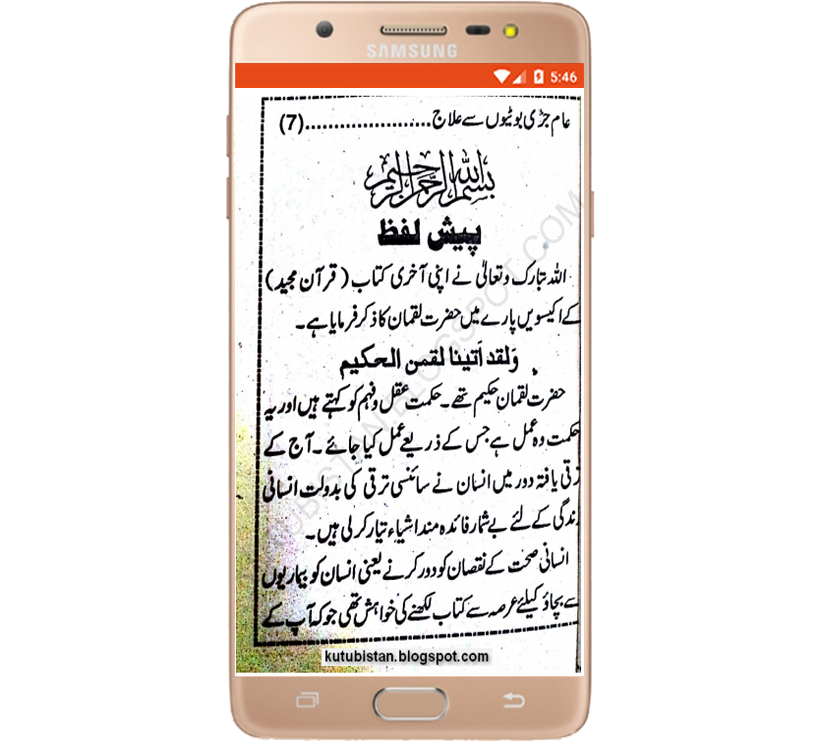 SAMSUNG
5:46
عام جڑی بوٹیوں سے علاج......................(7)
بسم اللہ الرحمن الرحیم
پیش لفظ
اللہ تبارک وتعالیٰ نے اپنی آخری کتاب (قرآن مجید)
کے اکیسویں پارے میں حضرت لقمان کا ذکر فرمایا ہے۔
وَلقد اَتینا لقمن الحکیم
حضرت لقمان حکیم تھے۔ حکمت عقل وفہم کو کہتے ہیں اور یہ
حکمت وہ عمل ہے جس کے ذریعے عمل کیا جائے۔ آج کے
ترقی یافتہ دور میں انسان نے سائنسی ترقی کی بدولت انسانی
زندگی کے لئے بے شمار فائدہ مند اشیاء تیار کر لی ہیں۔
انسانی صحت کے نقصان کو دور کرنے یعنی انسان کو بیماریوں
سے بچاؤ کیلئے عرصہ سے کتاب لکھنے کی خواہش تھی جو کہ آپ کے
KUTUBISTAN.BLOGSPOT.COM
kutubistan.blogspot.com